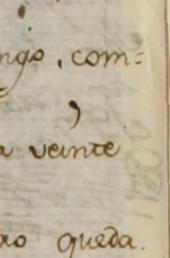 ngo, com=
a veinte
ro queda.